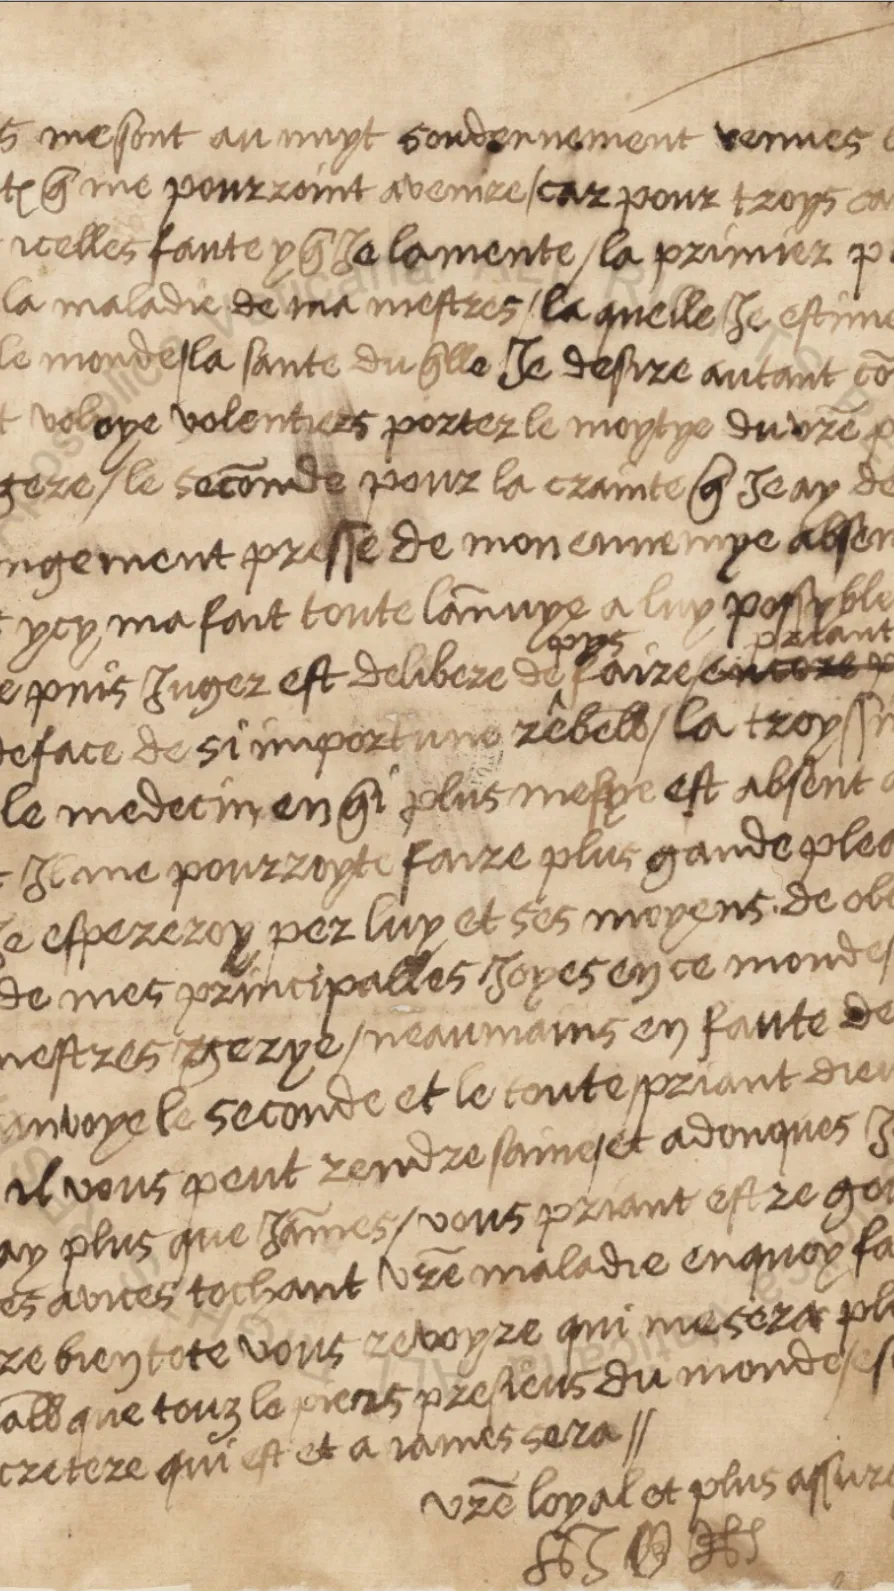 s me sont au nuyt soudennement venues
q̃ me pourroint avenire/car pour troys ca
icelles faute y q̃ Je lamente/la primier p
la maladie de ma mestres/la quelle Je estime
le monde/la sante du q̃lle Je desire autant cõ
voloye volentiers porter le moytye du vr̃e p
gere/le secõnde pour la crainte q̃ Je ay de
ngement presse de mon ennemye absen
ycy ma fait toute lãnuye a luy possyble
pys priant
e puis Juger est delibere de faire encore p
deface de si importune rebell/la troysi
le medecin en q̃i plus me fye est absent a
Il me pourroyte faire plus gande pleo
Je espereroy per luy et ses moyens de obt
de mes principalles Joyes en ce monde/
mestres gerye/neaumains en faute de
anvoye le seconde et le toute/priant dieu
il vous peut rendre saine/et adonques J
ay plus que Jãmes/vous priant estre gou
es avices tochant vr̃e maladie en quoy fa
re bien tote vous revoyre qui me sera plu
all que touz le piers presieus du monde/es
cretere qui est et a iames sera//
vr̃e loyal et plus assure